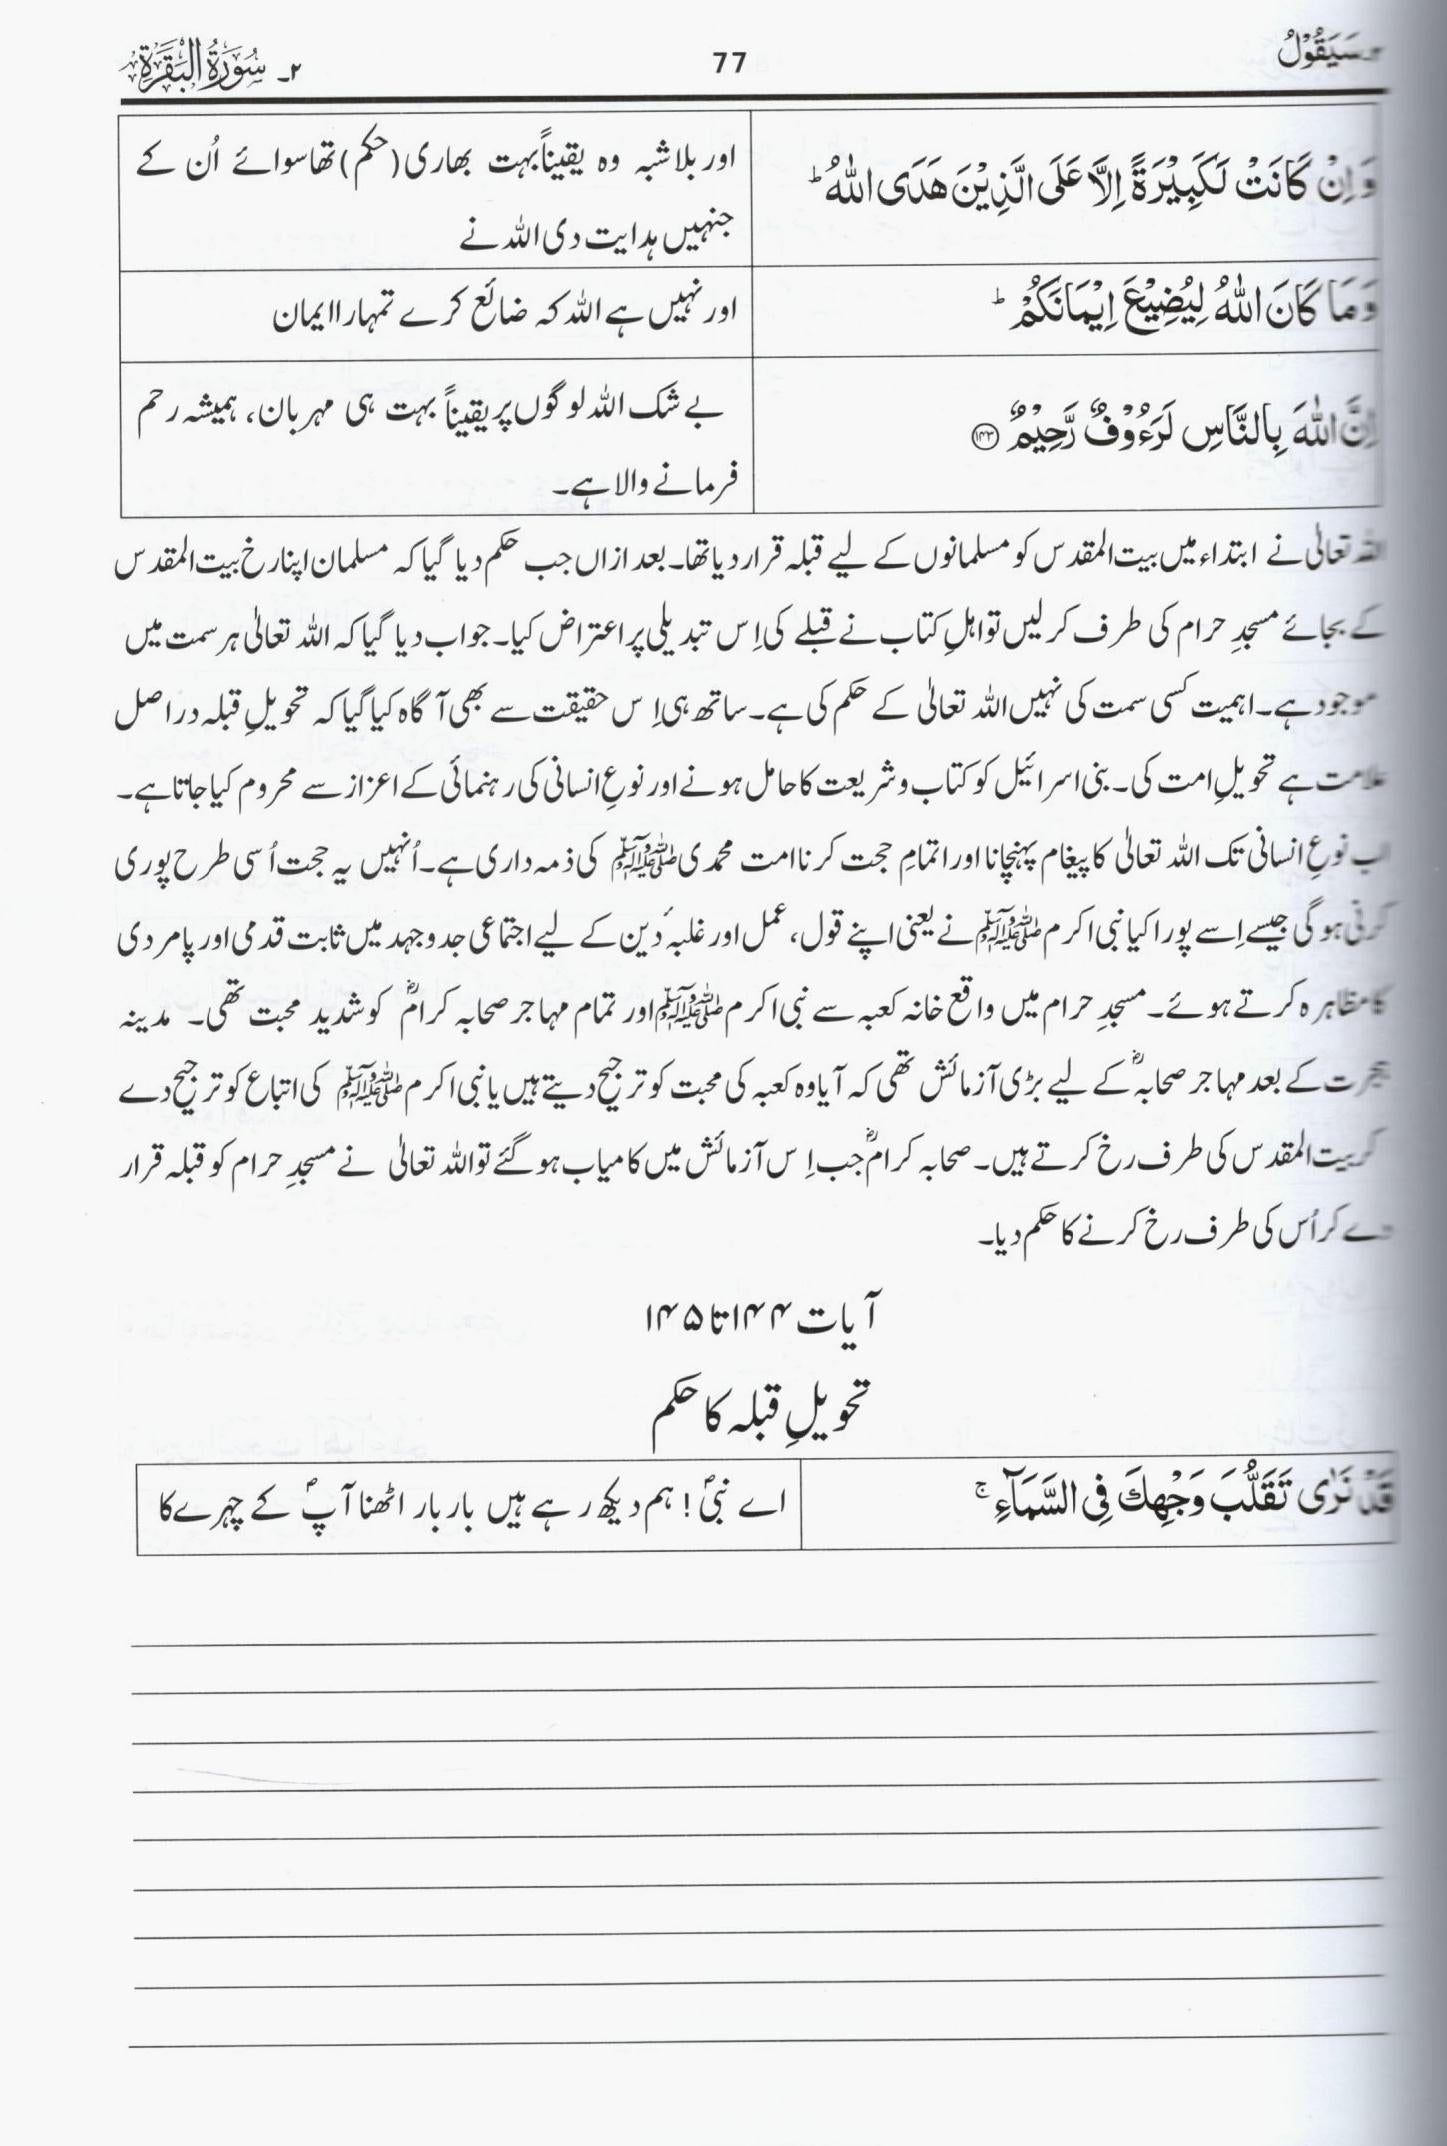 سَيَقُوْلُ
77
۲۔ سُوْرَةُ الْبَقَرَةِ
وَ اِنْ كَانَتْ لَكَبِيْرَةً اِلَّا عَلَى الَّذِيْنَ هَدَى اللّٰهُ ؕ
اور بلاشبہ وہ یقیناً بہت بھاری (حکم) تھا سوائے اُن کے
جنہیں ہدایت دی اللہ نے
وَ مَا كَانَ اللّٰهُ لِيُضِيْعَ اِيْمَانَكُمْ ؕ
اور نہیں ہے اللہ کہ ضائع کرے تمہارا ایمان
اِنَّ اللّٰهَ بِالنَّاسِ لَرَءُوْفٌ رَّحِيْمٌ ﴿۱۴۳﴾
بے شک اللہ لوگوں پر یقیناً بہت ہی مہربان، ہمیشہ رحم
فرمانے والا ہے۔
اللہ تعالیٰ نے ابتداء میں بیت المقدس کو مسلمانوں کے لیے قبلہ قرار دیا تھا۔ بعد ازاں جب حکم دیا گیا کہ مسلمان اپنا رخ بیت المقدس
کے بجائے مسجدِ حرام کی طرف کر لیں تو اہلِ کتاب نے قبلے کی اِس تبدیلی پر اعتراض کیا۔ جواب دیا گیا کہ اللہ تعالیٰ ہر سمت میں
موجود ہے۔ اہمیت کسی سمت کی نہیں اللہ تعالیٰ کے حکم کی ہے۔ ساتھ ہی اِس حقیقت سے بھی آگاہ کیا گیا کہ تحویلِ قبلہ دراصل
علامت ہے تحویلِ امت کی۔ بنی اسرائیل کو کتاب و شریعت کا حامل ہونے اور نوعِ انسانی کی رہنمائی کے اعزاز سے محروم کیا جاتا ہے۔
اب نوعِ انسانی تک اللہ تعالیٰ کا پیغام پہنچانا اور اتمامِ حجت کرنا امت محمدی ﷺ کی ذمہ داری ہے۔ اُنہیں یہ حجت اُسی طرح پوری
کرنی ہو گی جیسے اِسے پورا کیا نبی اکرم ﷺ نے یعنی اپنے قول، عمل اور غلبہ ٔ دین کے لیے اجتماعی جدوجہد میں ثابت قدمی اور پامردی
کا مظاہرہ کرتے ہوئے۔ مسجدِ حرام میں واقع خانہ کعبہ سے نبی اکرم ﷺ اور تمام مہاجر صحابہ کرامؓ کو شدید محبت تھی۔ مدینہ
ہجرت کے بعد مہاجر صحابہؓ کے لیے بڑی آزمائش تھی کہ آیا وہ کعبہ کی محبت کو ترجیح دیتے ہیں یا نبی اکرم ﷺ کی اتباع کو ترجیح دے
کر بیت المقدس کی طرف رخ کرتے ہیں۔ صحابہ کرامؓ جب اِس آزمائش میں کامیاب ہو گئے تو اللہ تعالیٰ نے مسجدِ حرام کو قبلہ قرار
دے کر اُس کی طرف رخ کرنے کا حکم دیا۔
آیات ۱۴۴ تا ۱۴۵
تحویلِ قبلہ کا حکم
قَدْ نَرٰى تَقَلُّبَ وَجْهِكَ فِى السَّمَآءِ ۚ
اے نبیؐ! ہم دیکھ رہے ہیں بار بار اٹھنا آپؐ کے چہرے کا